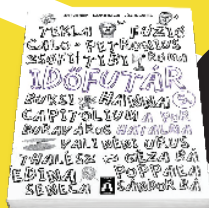 TEKLA FUZIO
GALO PETRONIUS
ZSOFI TIBI ROMA
IDŐFUTÁR
BUKSI HANNA
CAPITOLIUM A POR
BURAVÁROS HATALMA
VALIMENI URUS
THALÉSZ GÉZA RÁ
EDINA POPPAEA
SENECA SÁNDOR BÁ